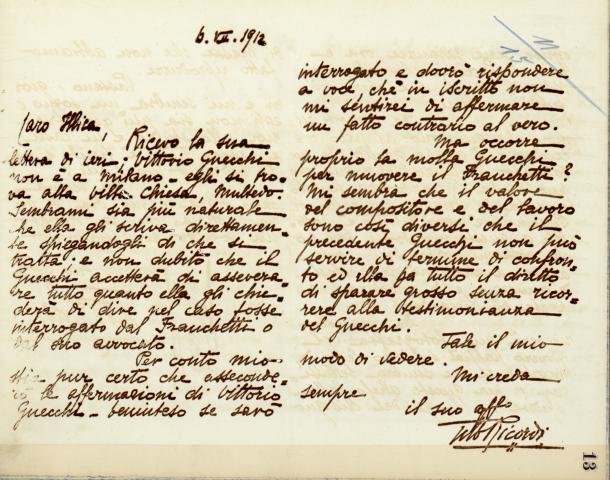 6. VII. 1912
11
15
Caro Illica,
Ricevo la sua
lettera di ieri; Vittorio Gnecchi
non è a Milano - egli si tro-
va alla villa Chiesa, Multedo.
Sembrami sia più naturale
che ella gli scriva direttamen-
te spiegandogli di che si
tratta; e non dubito che il
Gnecchi accetterà di assevera-
re tutto quanto ella gli chie-
derà di dire nel caso fosse
interrogato dal Franchetti o
dal suo avvocato.
Per conto mio
stia pur certo che asseconde-
rò le affermazioni di Vittorio
Gnecchi - beninteso se sarò
interrogato e dovrò rispondere
a voce, chè in iscritto non
mi sentirei di affermare
un fatto contrario al vero.
Ma occorre
proprio la molla Gnecchi
per muovere il Franchetti?
Mi sembra che il valore
del compositore e del lavoro
sono così diversi, che il
precedente Gnecchi non può
servire di termine di confron-
to ed ella ha tutto il diritto
di sparare grosso senza ricor-
rere alla testimonianza
del Gnecchi.
Tale il mio
modo di vedere.
Mi creda
sempre
il suo affo
Tito Ricordi
13